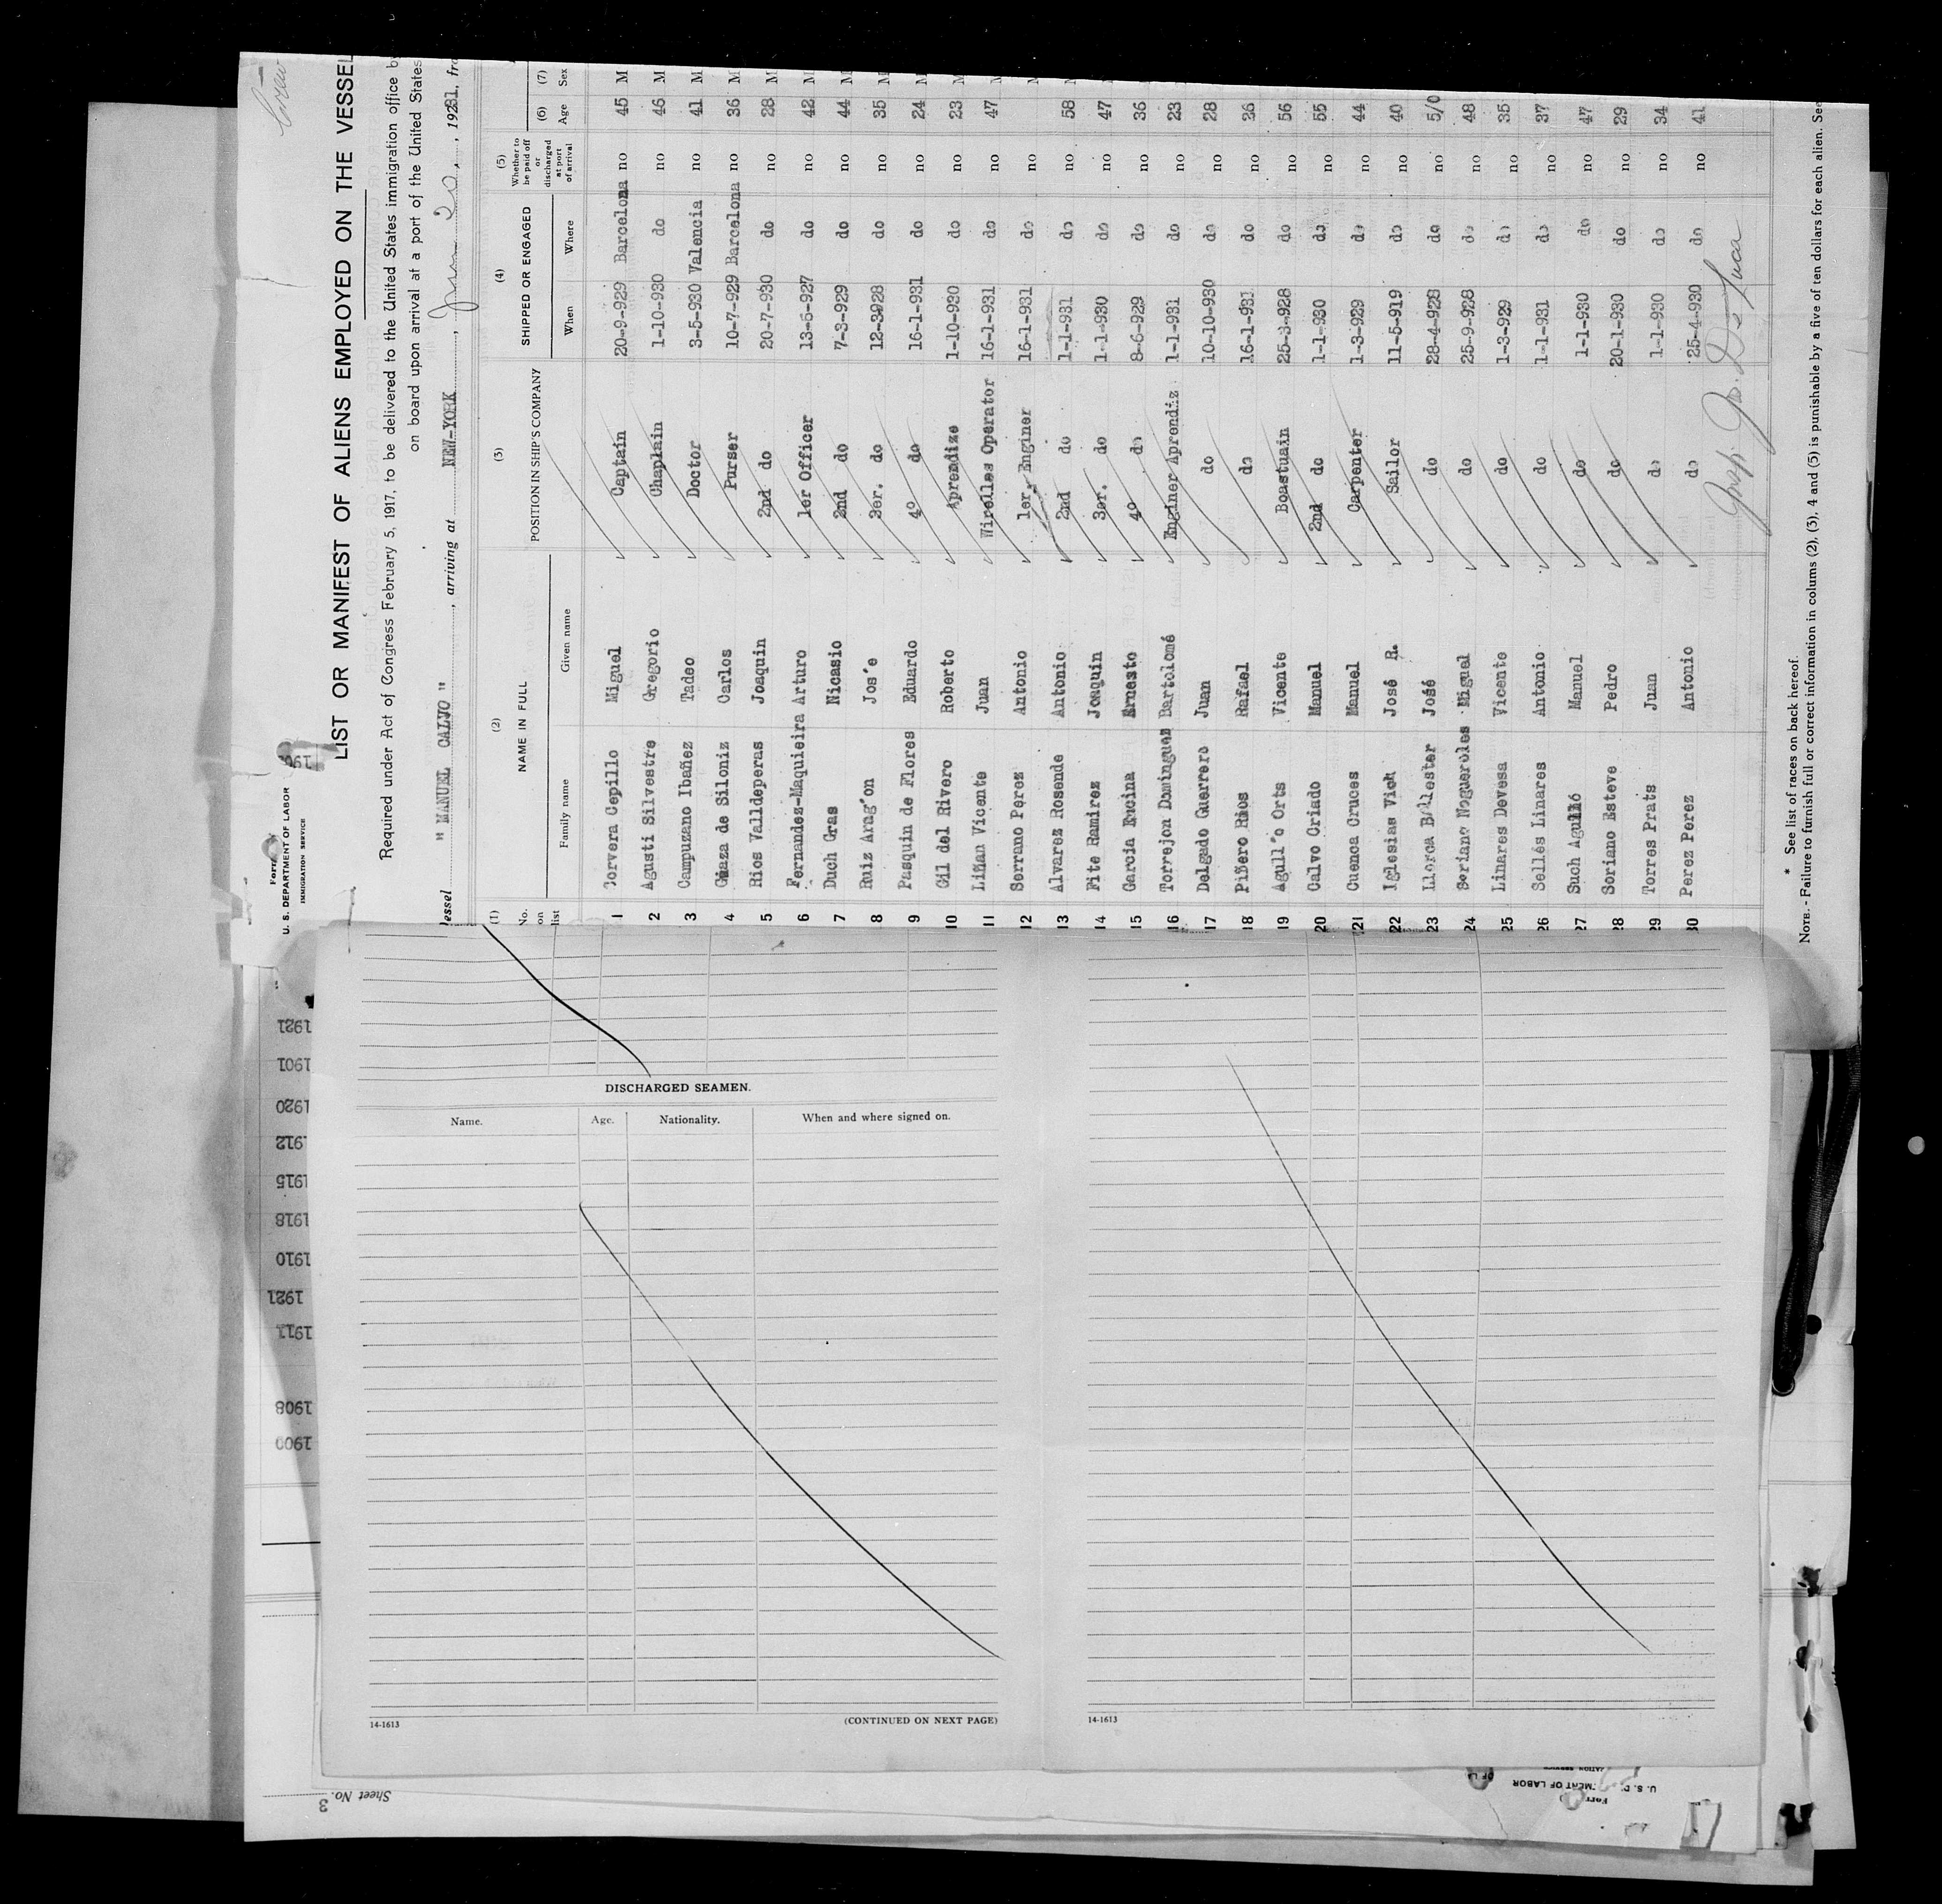 Crew
Form
U. S. DEPARTMENT OF LABOR
IMMIGRATION SERVICE
LIST OR MANIFEST OF ALIENS EMPLOYED ON THE VESSEL
Required under Act of Congress February 5, 1917, to be delivered to the United States immigration office
on board upon arrival at a port of the United States
essel " MANUEL CALVO " , arriving at NEW-YORK , 20 , 1931, fro
(1) (2) (3) (4) (5) (6) (7)
No. on list NAME IN FULL POSITION IN SHIP'S COMPANY SHIPPED OR ENGAGED Whether to be paid off or discharged at port of arrival Age Sex
Family name Given name When Where
1 Corvera Cepillo Miguel Captain 20-9-929 Barcelona no 45 M
2 Agusti Silvestre Gregorio Chaplain 1-10-930 do no 46 M
3 Campuzano Ibañez Tadeo Doctor 3-5-930 Valencia no 41 M
4 de Siloniz Carlos Purser 10-7-929 Barcelona no 36 M
5 Rios Valldeperas Joaquin 2nd do 20-7-930 do no 28 M
6 Fernandez-Maquieira Arturo 1er Officer 13-6-927 do no 42 M
7 Duch Gras Nicasio 2nd do 7-3-929 do no 44 M
8 Ruiz Arag'on Jos'e 3er. do 12-3928 do no 35 M
9 Pasquin de Flores Eduardo 4o do 16-1-931 do no 24 M
10 Gil del Rivero Roberto Aprendize 1-10-930 do no 23 M
11 Liñan Vicente Juan Wirelles Operator 16-1-931 do no 47 M
12 Serrano Perez Antonio 1er. Enginer 16-1-931 do no M
13 Alvarez Rosende Antonio 2nd do 1-1-931 do no 58 M
14 Fite Ramirez Joaquin 3er. do 1-1-930 do no 47
15 Garcia Encina Ernesto 4o do 8-6-929 do no 36
16 Torrejon Dominguez Bartolomé Enginer Aprendiz 1-1-931 do no 23
17 Delgado Guerrero Juan do 10-10-930 do no 28
18 Piñero Rios Rafael do 16-1-931 do no 26
19 Agull'o Orts Vicente Boastuain 25-3-928 do no 56
20 Calvo Criado Manuel 2nd do 1-1-930 do no 55
21 Cuenca Cruces Manuel Carpenter 1-3-929 do no 44
22 Iglesias Vich José R. Sailor 11-5-919 do no 40
23 Llorca Ballester José do 28-4-928 do no 5/0
24 Soriano Nogueroles Miguel do 25-9-928 do no 48
25 Linares Devesa Vicente do 1-3-929 do no 35
26 Sellés Linares Antonio do 1-1-931 do no 37
27 Such Agulló Manuel do 1-1-930 do no 47
28 Soriano Esteve Pedro do 20-1-930 do no 29
29 Torres Prats Juan do 1-1-930 do no 34
30 Perez Perez Antonio do 25-4-930 do no 41
De Luca
* See list of races on back hereof.
NOTE. - Failure to furnish full or correct information in colums (2), (3), 4 and (5) is punishable by a five of ten dollars for each alien. See
1921
1901
1920
1912
1915
1918
1910
1921
1911
1908
1909
DISCHARGED SEAMEN.
Name. Age. Nationality. When and where signed on.
14-1613 (CONTINUED ON NEXT PAGE)
14-1613
Sheet No. 3